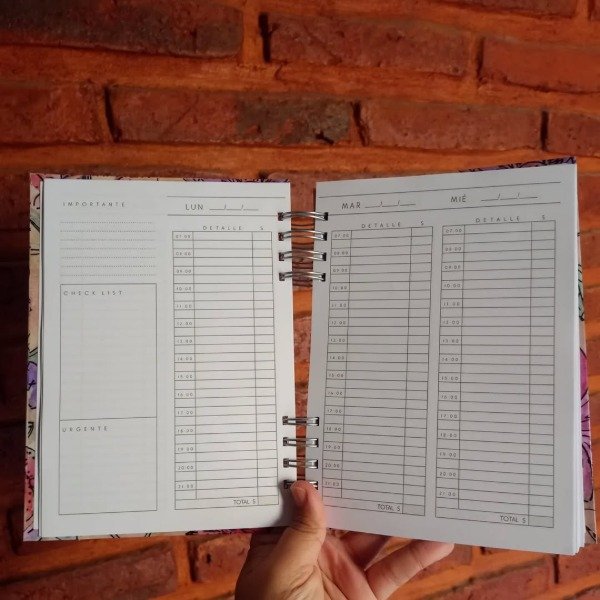 IMPORTANTE
CHECK LIST
URGENTE
LUN __/__/__
DETALLE $
07:00
08:00
09:00
10:00
11:00
12:00
13:00
14:00
15:00
16:00
17:00
18:00
19:00
20:00
21:00
TOTAL $
MAR __/__/__
DETALLE $
07:00
08:00
09:00
10:00
11:00
12:00
13:00
14:00
15:00
16:00
17:00
18:00
19:00
20:00
21:00
TOTAL $
MIÉ __/__/__
DETALLE $
07:00
08:00
09:00
10:00
11:00
12:00
13:00
14:00
15:00
16:00
17:00
18:00
19:00
20:00
21:00
TOTAL $